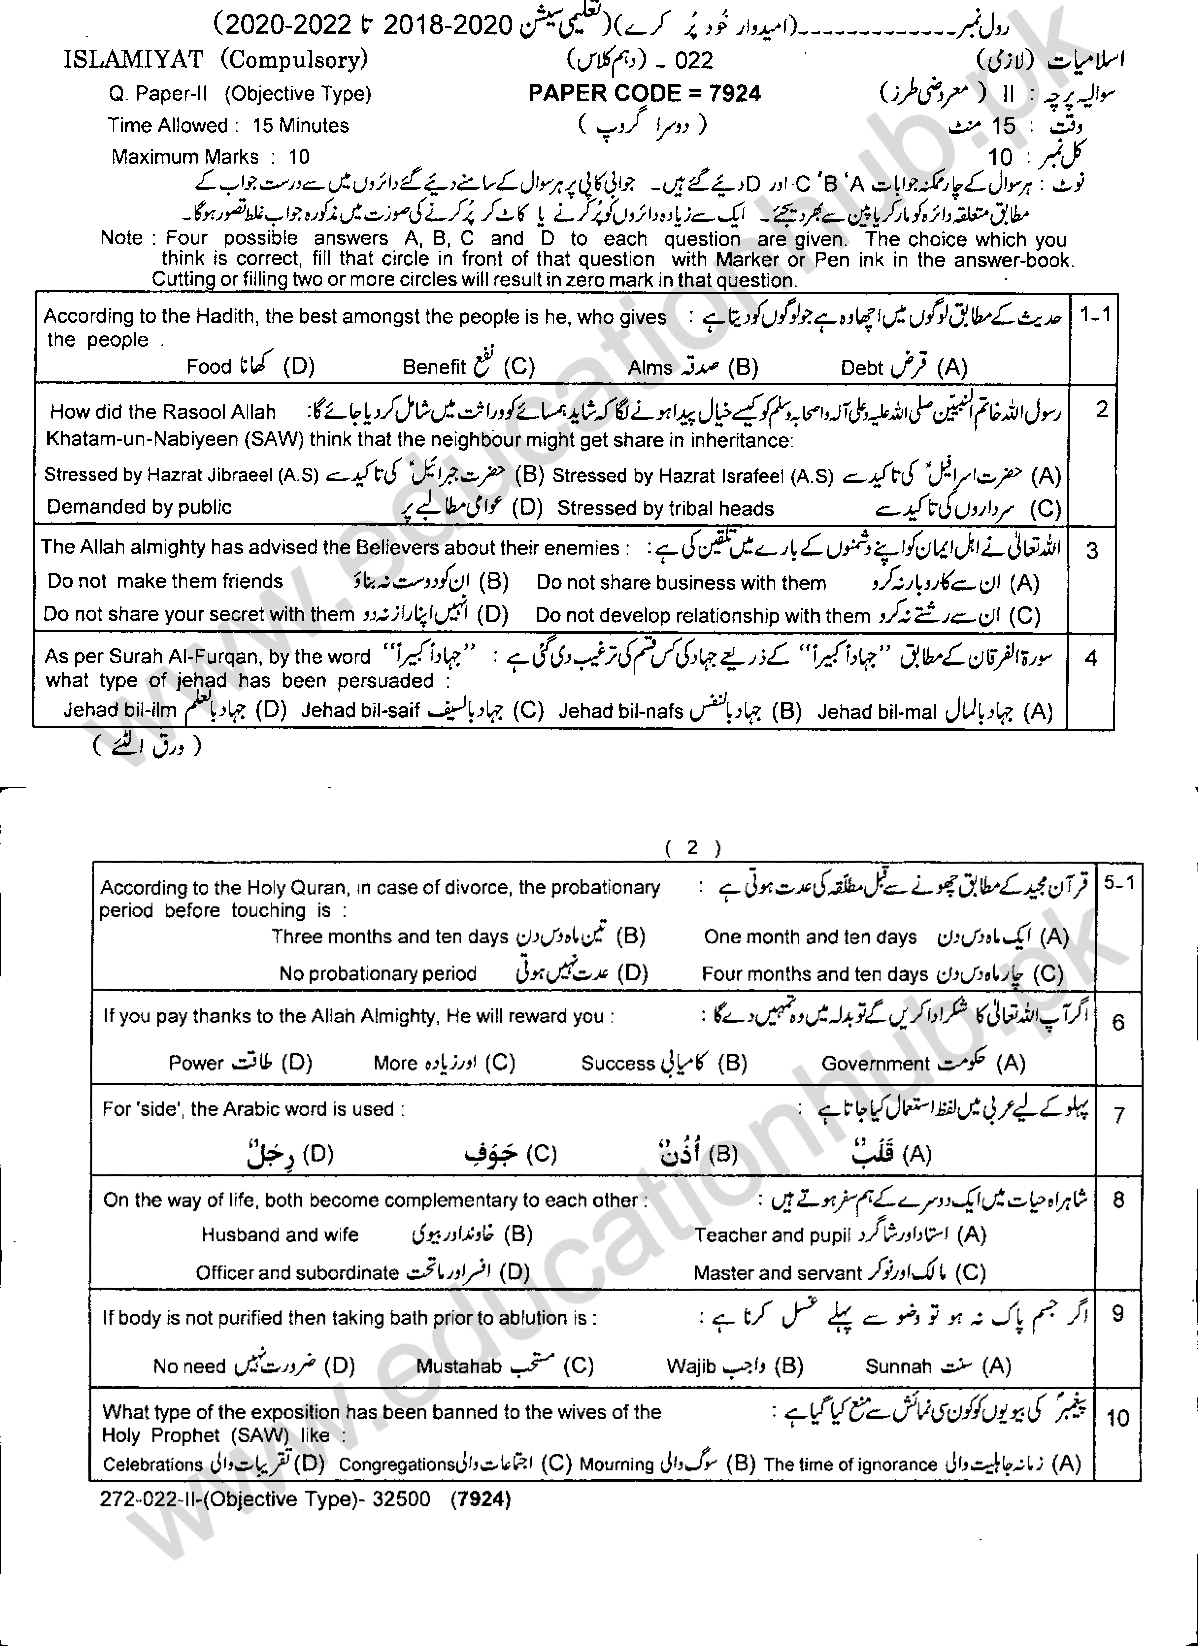 رول نمبر-------------(امیدوار خود پُر کرے)(تعلیمی سیشن 2018-2020 تا 2020-2022)
ISLAMIYAT (Compulsory) 022 - (دہم کلاس) اسلامیات (لازمی)
Q. Paper-II (Objective Type) PAPER CODE = 7924 سوالیہ پرچہ : II (معروضی طرز)
Time Allowed : 15 Minutes (دوسرا گروپ) وقت : 15 منٹ
Maximum Marks : 10 کل نمبر : 10
نوٹ : ہر سوال کے چار ممکنہ جوابات A ، B ، C اور D دیئے گئے ہیں۔ جوابی کاپی پر ہر سوال کے سامنے دیئے گئے دائروں میں سے درست جواب کے
مطابق متعلقہ دائرہ کو مارکر یا پین سے بھر دیجئے۔ ایک سے زیادہ دائروں کو پُر کرنے یا کاٹ کر پُر کرنے کی صورت میں مذکورہ جواب غلط تصور ہوگا۔
Note : Four possible answers A, B, C and D to each question are given. The choice which you
think is correct, fill that circle in front of that question with Marker or Pen ink in the answer-book.
Cutting or filling two or more circles will result in zero mark in that question.
1-1 حدیث کے مطابق لوگوں میں اچھا وہ ہے جو لوگوں کو دیتا ہے : According to the Hadith, the best amongst the people is he, who gives
the people .
(A) قرض Debt (B) صدقہ Alms (C) نفع Benefit (D) کھانا Food
2 رسول اللہ خاتم النبیّین صلی اللہ علیہ وعلی آلہ واصحابہ وسلم کو کیسے خیال پیدا ہونے لگا کہ شاید ہمسائے کو وراثت میں شامل کر دیا جائے گا: How did the Rasool Allah
Khatam-un-Nabiyeen (SAW) think that the neighbour might get share in inheritance:
(A) حضرت اسرافیلؑ کی تاکید سے Stressed by Hazrat Israfeel (A.S) (B) حضرت جبرائیلؑ کی تاکید سے Stressed by Hazrat Jibraeel (A.S)
(C) سرداروں کی تاکید سے Stressed by tribal heads (D) عوامی مطالبے پر Demanded by public
3 اللہ تعالیٰ نے اہل ایمان کو اپنے دشمنوں کے بارے میں تلقین کی ہے : The Allah almighty has advised the Believers about their enemies :
(A) ان سے کاروبار نہ کرو Do not share business with them (B) ان کو دوست نہ بناؤ Do not make them friends
(C) ان سے رشتے نہ کرو Do not develop relationship with them (D) انہیں اپنا راز نہ دو Do not share your secret with them
4 سورۃ الفرقان کے مطابق "جہاداً کبیراً" کے ذریعے جہاد کی کس قسم کی ترغیب دی گئی ہے : As per Surah Al-Furqan, by the word "جہاداً کبیراً"
what type of jehad has been persuaded :
(A) جہاد بالمال Jehad bil-mal (B) جہاد بالنفس Jehad bil-nafs (C) جہاد بالسیف Jehad bil-saif (D) جہاد بالعلم Jehad bil-ilm
( ورق الٹیے )
( 2 )
5-1 قرآن مجید کے مطابق چھونے سے قبل مطلقہ کی عدت ہوتی ہے : According to the Holy Quran, in case of divorce, the probationary
period before touching is :
(A) ایک ماہ دس دن One month and ten days (B) تین ماہ دس دن Three months and ten days
(C) چار ماہ دس دن Four months and ten days (D) عدت نہیں ہوتی No probationary period
6 اگر آپ اللہ تعالیٰ کا شکر ادا کریں گے تو بدلہ میں وہ تمہیں دے گا : If you pay thanks to the Allah Almighty, He will reward you :
(A) حکومت Government (B) کامیابی Success (C) اور زیادہ More (D) طاقت Power
7 پہلو کے لیے عربی میں لفظ استعمال کیا جاتا ہے : For 'side', the Arabic word is used :
(A) قَلْبٌ (B) أُذُنٌ (C) جَوْفِ (D) رِجْلٌ
8 شاہراہ حیات میں ایک دوسرے کے ہم سفر ہوتے ہیں : On the way of life, both become complementary to each other :
(A) استاد اور شاگرد Teacher and pupil (B) خاوند اور بیوی Husband and wife
(C) مالک اور نوکر Master and servant (D) افسر اور ماتحت Officer and subordinate
9 اگر جسم پاک نہ ہو تو وضو سے پہلے غسل کرنا ہے : If body is not purified then taking bath prior to ablution is :
(A) سنت Sunnah (B) واجب Wajib (C) مستحب Mustahab (D) ضرورت نہیں No need
10 پیغمبرؐ کی بیویوں کو کون سی نمائش سے منع کیا گیا ہے : What type of the exposition has been banned to the wives of the
Holy Prophet (SAW) like :
(A) زمانہ جاہلیت والی The time of ignorance (B) سوگ والی Mourning (C) اجتماعات والی Congregations (D) تقریبات والی Celebrations
272-022-II-(Objective Type)- 32500 (7924)
www.educationhub.pk
www.educationhub.pk